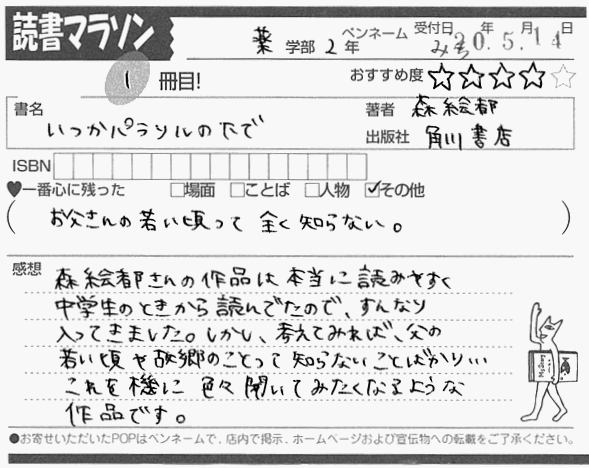 読書マラソン
薬 学部 2 年 ペンネーム みち 受付日 20年.5月.14日
1 冊目! おすすめ度 ★★★★☆
書名 いつかパラソルの下で
著者 森絵都
出版社 角川書店
ISBN
♥一番心に残った □場面 □ことば □人物 ☑その他
(お父さんの若い頃って全く知らない。)
感想
森絵都さんの作品は本当に読みやすく
中学生のときから読んでたので、すんなり
入ってきました。しかし、考えてみれば、父の
若い頃や故郷のことって知らないことばかり…
これを機に色々聞いてみたくなるような
作品です。
●お寄せいただいたPOPはペンネームで、店内で掲示、ホームページおよび宣伝物への転載をご了承ください。